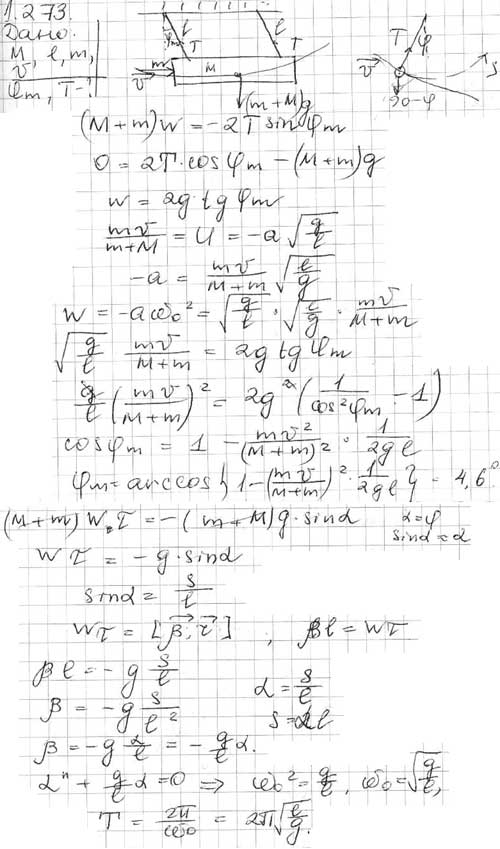 1.273.
Дано:
M, l, m,
v
φm, T-?
l
l
φm
T
T
m
M
v
(m+M)g
T
φ
v
90-φ
S
(M+m)w = -2T sin φm
0 = 2T·cos φm - (M+m)g
w = 2g tg φm
mv/(m+M) = U = -a √(g/l)
-a = mv/(M+m) √(l/g)
w = -aω₀² = √(g/l) · √(l/g) · mv/(M+m)
√(g/l) mv/(M+m) = 2g tg φm
g/l (mv/(M+m))² = 2g² (1/cos²φm - 1)
cos φm = 1 - mv²/(M+m)² · 1/2gl
φm = arccos {1 - (mv/(M+m))² · 1/2gl} = 4,6°
(M+m) Wτ = -(m+M)g·sinα α=φ
sinα=α
Wτ = -g·sinα
sinα = s/l
Wτ = [β, τ] ; βl = Wτ
βl = -g s/l
α = s/l
β = -g s/l²
s = αl
β = -g α/l = -g/l α.
α" + g/l α = 0 ⇒ ω₀² = g/l, ω₀ = √(g/l),
T = 2π/ω₀ = 2π√(l/g).